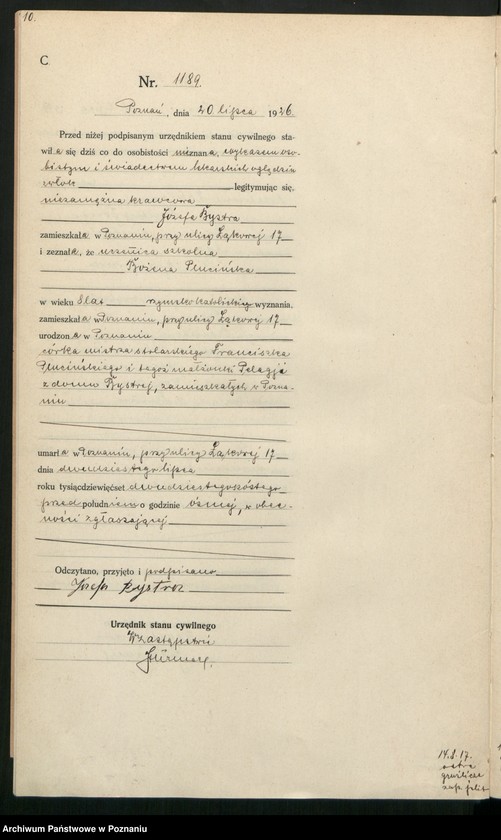 10.
C
Nr. 1189.
Poznań, dnia 20 lipca 1926.
Przed niżej podpisanym urzędnikiem stanu cywilnego sta-
wiła się dziś co do osobistości nieznana, wykazem oso-
bistym i świadectwem lekarskich oględzin
zwłok legitymując się,
niezamężna krawcowa
Józefa Bystra
zamieszkała w Poznaniu, przy ulicy Łąkowej 17
i zeznała, że uczenica szkolna
Bożena Plucińska
w wieku 8 lat rzymsko katolickiego wyznania,
zamieszkała w Poznaniu, przy ulicy Łąkowej 17
urodzona w Poznaniu
córka mistrza stolarskiego Franciszka
Plucińskiego i tegoż małżonki Pelagji
z domu Bystrej, zamieszkałych w Pozna-
niu
umarła w Poznaniu, przy ulicy Łąkowej 17
dnia dwudziestego lipca
roku tysiącdziewięćset dwudziestegoszóstego
przed południem o godzinie ósmej, w obec-
ności zgłaszającej
Odczytano, przyjęto i podpisano
Józefa Bystra
Urzędnik stanu cywilnego
W zastępstwie
14.8.17.
ostra
gruźlica
Archiwum Państwowe w Poznaniu